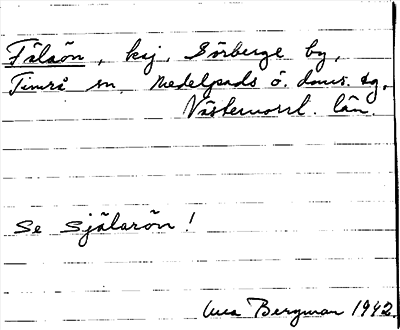 Fälaön, kaj, Sörberge by,
Timrå sn, Medelpads ö. doms. tg,
Västernorrl. län.
Se Själarön!
Bergman 1942.